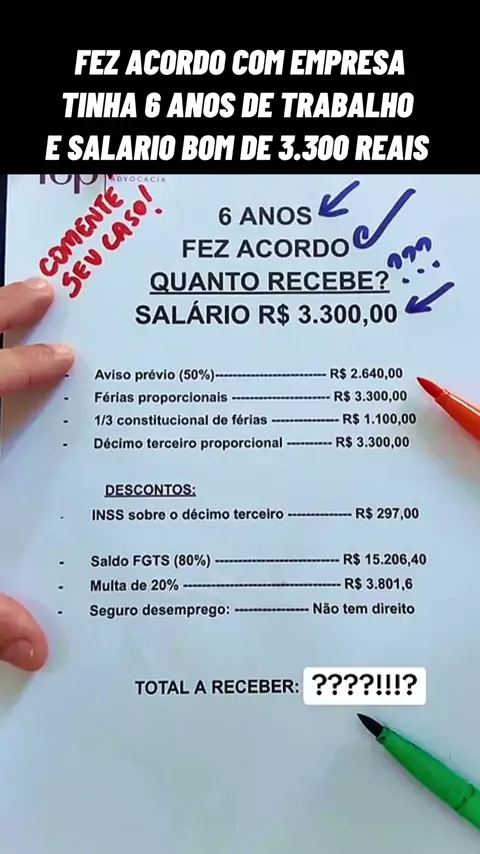 FEZ ACORDO COM EMPRESA
TINHA 6 ANOS DE TRABALHO
E SALARIO BOM DE 3.300 REAIS
ADVOCACIA
COMENTE
SEU CASO!
6 ANOS
FEZ ACORDO
QUANTO RECEBE?
???
SALÁRIO R$ 3.300,00
- Aviso prévio (50%)------------------------- R$ 2.640,00
- Férias proporcionais -------------------- R$ 3.300,00
- 1/3 constitucional de férias --------------- R$ 1.100,00
- Décimo terceiro proporcional ---------- R$ 3.300,00
DESCONTOS:
- INSS sobre o décimo terceiro -------------- R$ 297,00
- Saldo FGTS (80%)---------------------------- R$ 15.206,40
- Multa de 20% ----------------------------------- R$ 3.801,6
- Seguro desemprego: ---------------- Não tem direito
TOTAL A RECEBER: ????!!!?